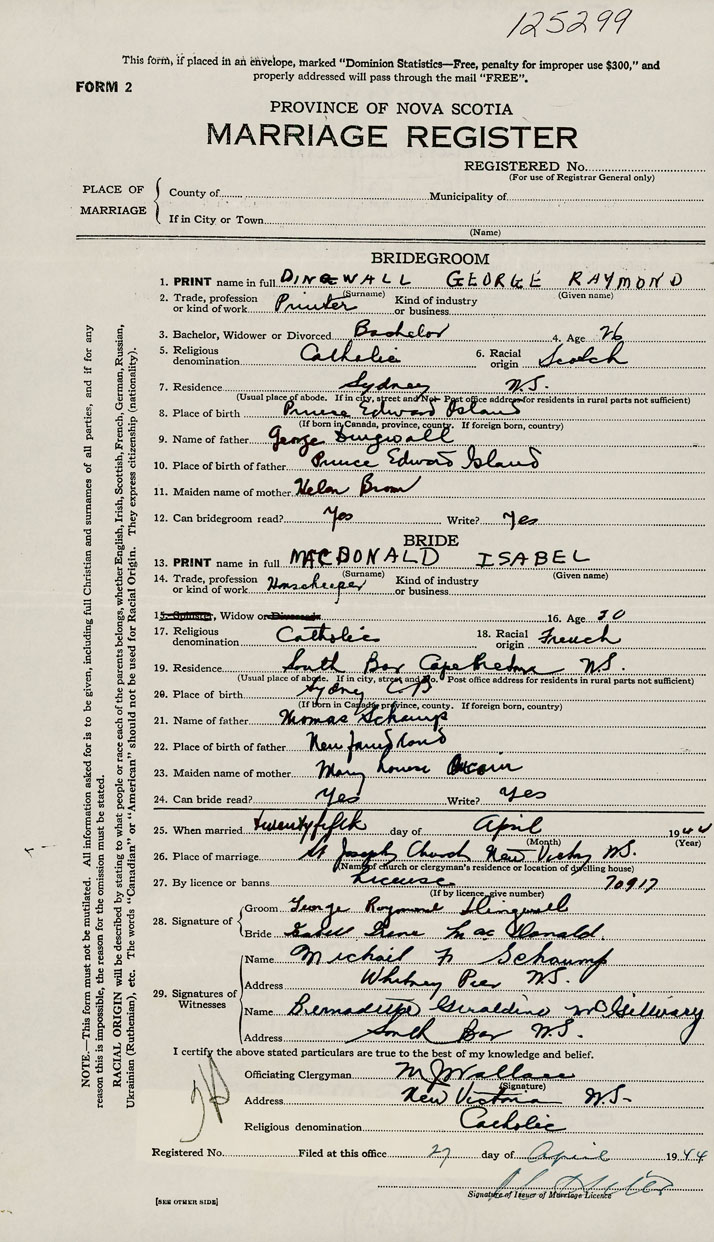 125299
This form, if placed in an envelope, marked "Dominion Statistics—Free, penalty for improper use $300," and
properly addressed will pass through the mail "FREE".
FORM 2
PROVINCE OF NOVA SCOTIA
MARRIAGE REGISTER
REGISTERED No.
(For use of Registrar General only)
PLACE OF MARRIAGE
County of Municipality of
If in City or Town
(Name)
BRIDEGROOM
1. PRINT name in full DINGWALL GEORGE RAYMOND
(Surname) (Given name)
2. Trade, profession or kind of work Printer Kind of industry or business
3. Bachelor, Widower or Divorced Bachelor 4. Age 26
5. Religious denomination Catholic 6. Racial origin Scotch
7. Residence Sydney N.S.
(Usual place of abode. If in city, street and No. Post office address for residents in rural parts not sufficient)
8. Place of birth Prince Edward Island
(If born in Canada, province, county. If foreign born, country)
9. Name of father George Dingwall
10. Place of birth of father Prince Edward Island
11. Maiden name of mother Helen
12. Can bridegroom read? Yes Write? Yes
BRIDE
13. PRINT name in full MACDONALD ISABEL
(Surname) (Given name)
14. Trade, profession or kind of work Housekeeper Kind of industry or business
15. Spinster, Widow or Divorced 16. Age 30
17. Religious denomination Catholic 18. Racial origin French
19. Residence South Bar Cape Breton N.S.
(Usual place of abode. If in city, street and No. Post office address for residents in rural parts not sufficient)
20. Place of birth Sydney C B
(If born in Canada, province, county. If foreign born, country)
21. Name of father Thomas Schamp
22. Place of birth of father Newfoundland
23. Maiden name of mother Mary Louise
24. Can bride read? Yes Write? Yes
25. When married twenty fifth day of April 1944
(Month) (Year)
26. Place of marriage St Joseph Church New Vic N.S.
(Name of church or clergyman's residence or location of dwelling house)
27. By licence or banns License 70917
(If by licence, give number)
28. Signature of
Groom George Raymond Dingwall
Bride Isabel Irene MacDonald
29. Signatures of Witnesses
Name Michael Schaump
Address Whitney Pier N.S.
Name Bernadette Geraldine McGillivary
Address South Bar N.S.
I certify the above stated particulars are true to the best of my knowledge and belief.
Officiating Clergyman M J Wallace
(Signature)
Address New Victoria N.S.
Religious denomination Catholic
Registered No. Filed at this office 27 day of April 1944
Signature of Issuer of Marriage Licence
[SEE OTHER SIDE]
NOTE.—This form must not be mutilated. All information asked for is to be given, including full Christian and surnames of all parties, and if for any
reason this is impossible, the reason for the omission must be stated.
RACIAL ORIGIN will be described by stating to what people or race each of the parents belongs, whether English, Irish, Scottish, French, German, Russian,
Ukrainian (Ruthenian), etc. The words "Canadian" or "American" should not be used for Racial Origin. They express citizenship (nationality).